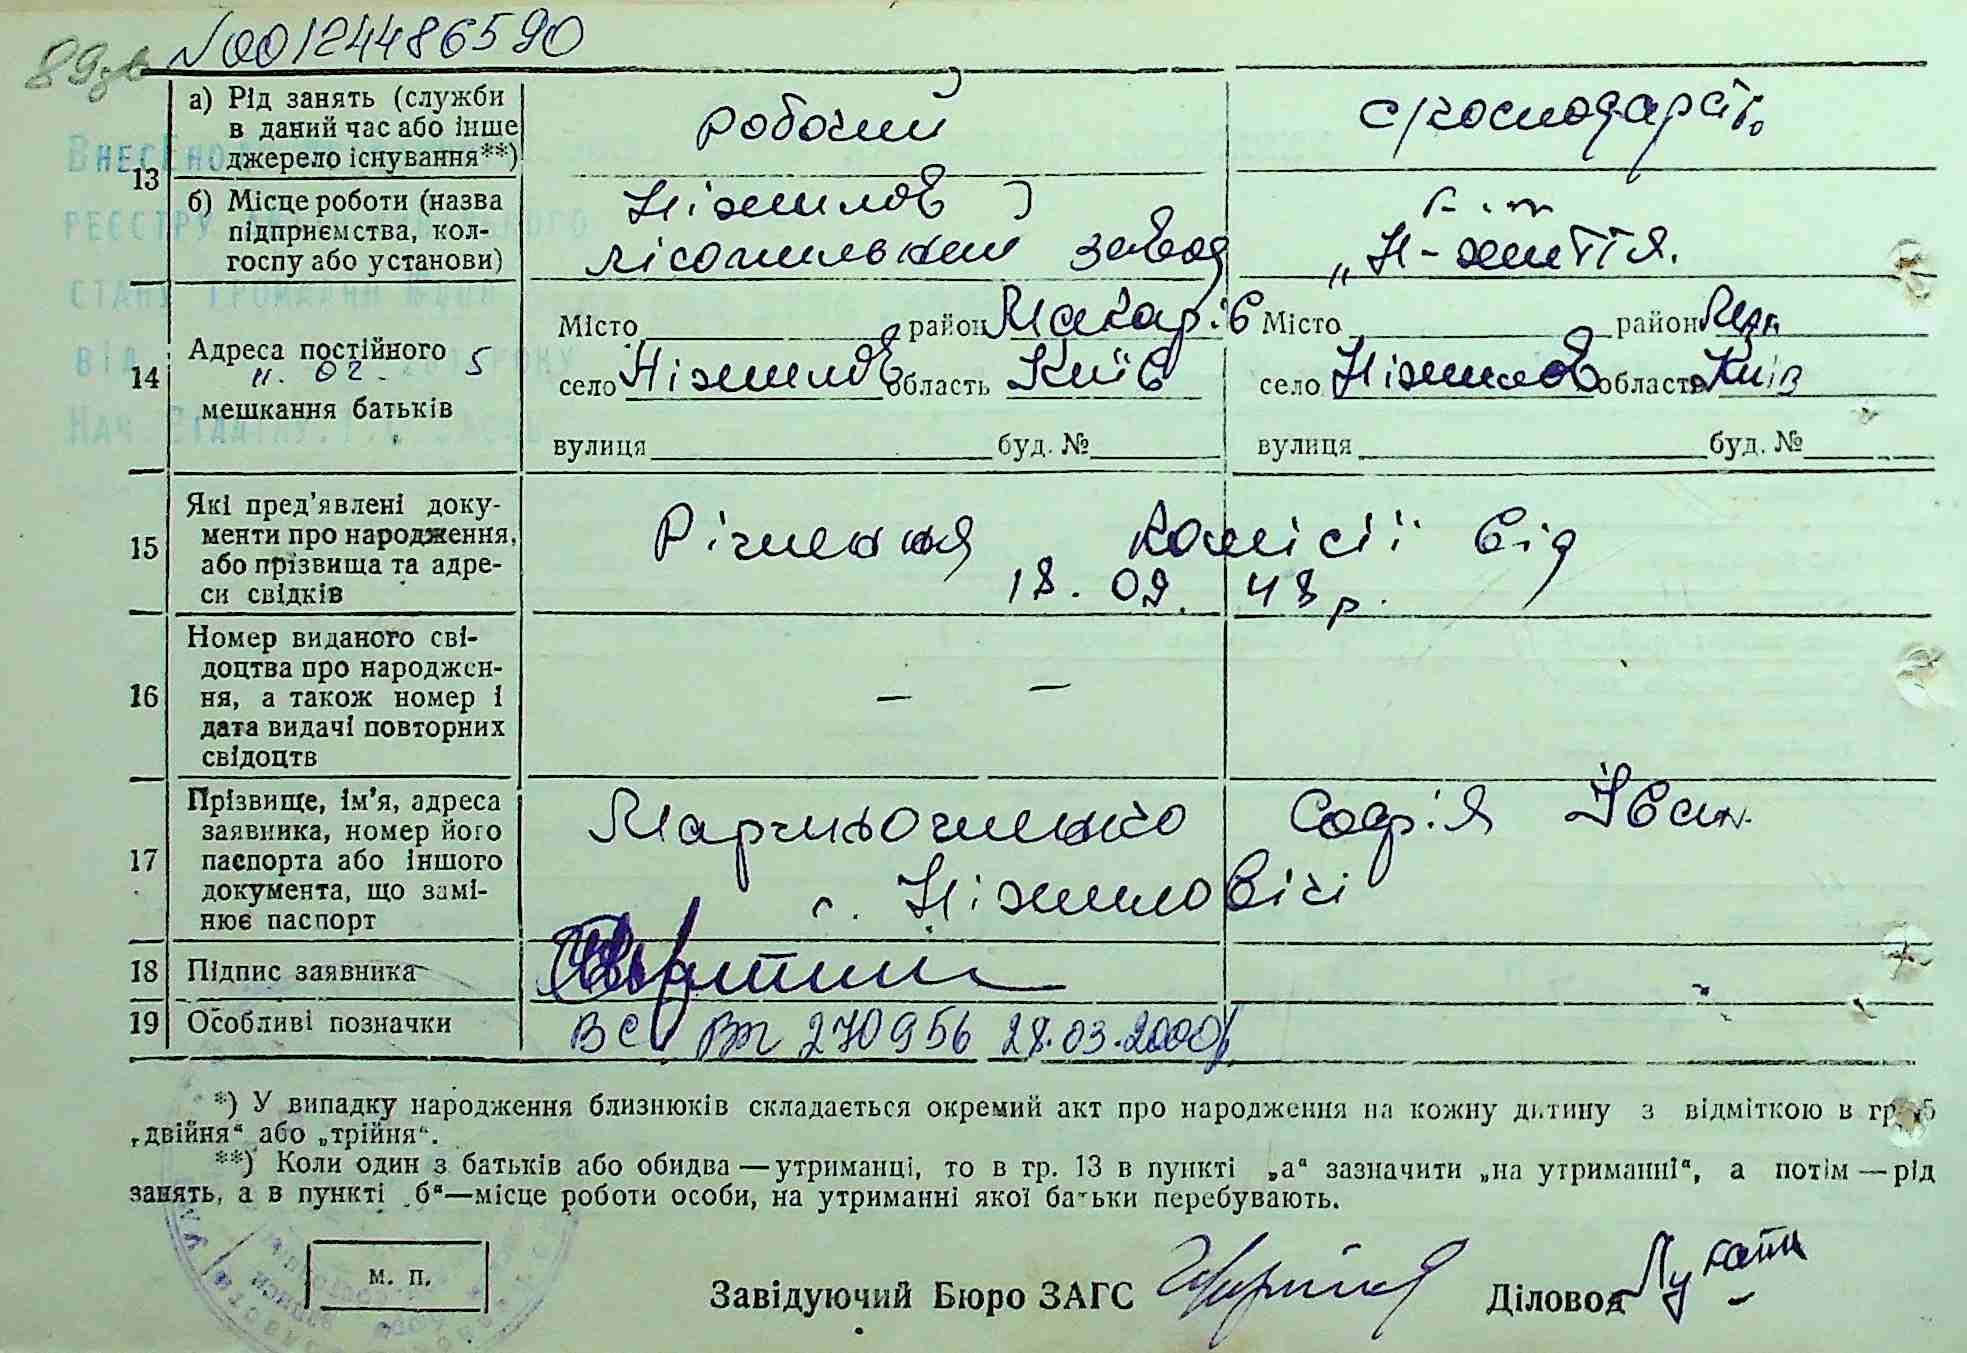 №00124486590
а) Рід занять (служби
в даний час або інше
джерело існування**)
робочий
с/господарств.
13
б) Місце роботи (назва
підприємства, кол-
госпу або установи)
Ніжилов
лісопильний завод
"Н-життя.
ВНЕСЕНО
РЕЄСТРУ
СТАНУ ГРОМАДЯН
ВІД 11. 02. 5 РОКУ
14
Адреса постійного
мешкання батьків
Місто район Макарів
село Ніжилов область Київ
вулиця буд. №
Місто район Мак
село Ніжилов область Київ
вулиця буд. №
15
Які пред'явлені доку-
менти про народження,
або прізвища та адре-
си свідків
Рішення комісії від
18. 09. 48 р.
16
Номер виданого сві-
доцтва про народжен-
ня, а також номер і
дата видачі повторних
свідоцтв
— —
17
Прізвище, ім'я, адреса
заявника, номер його
паспорта або іншого
документа, що замі-
нює паспорт
Софія Іван.
с. Ніжиловічі
18 Підпис заявника
19 Особливі позначки
270956 28.03.2000
*) У випадку народження близнюків складається окремий акт про народження на кожну дитину з відміткою в гр. 5
„двійня“ або „трійня“.
**) Коли один з батьків або обидва — утриманці, то в гр. 13 в пункті „а“ зазначити „на утриманні“, а потім — рід
занять, а в пункті „б“—місце роботи особи, на утриманні якої батьки перебувають.
м. п.
Завідуючий Бюро ЗАГС
Діловод